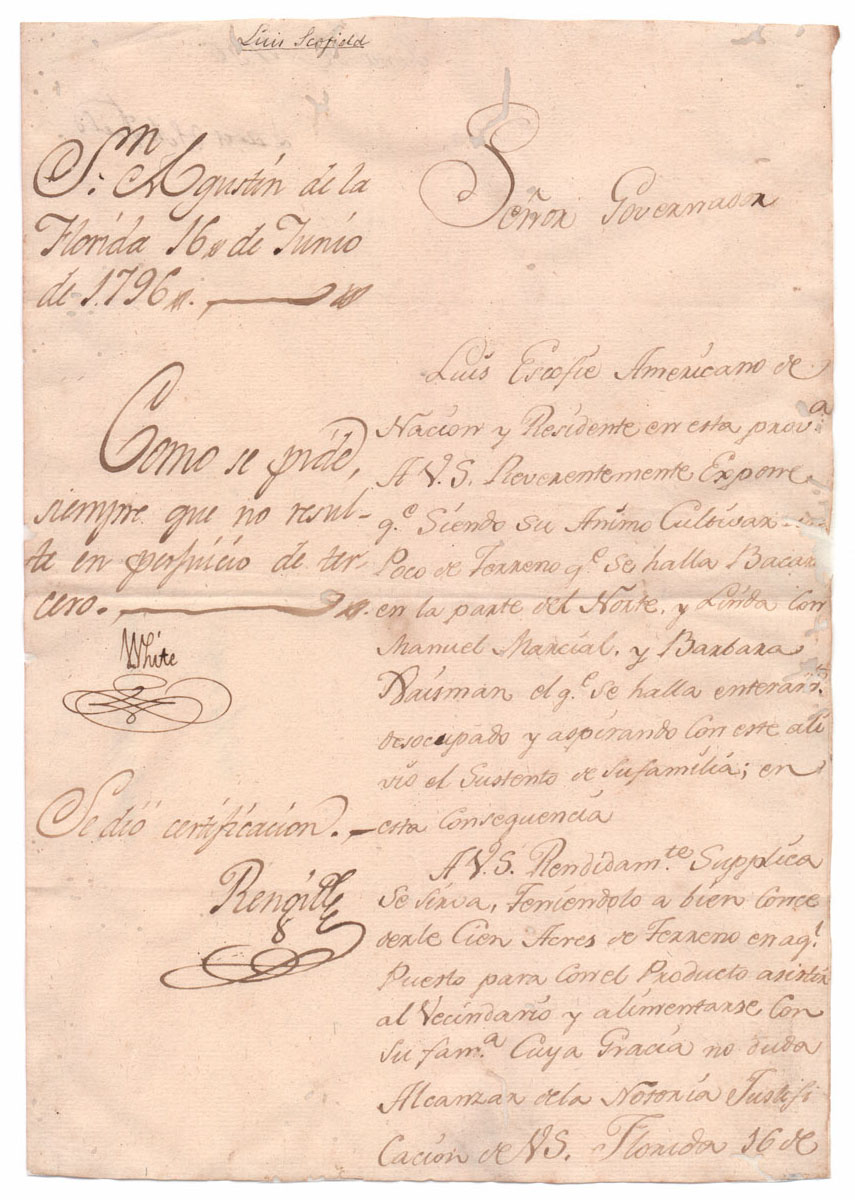 Luis Scofield
Sn. Agustín de la
Florida 16 de Junio
de 1796.
Como se pide,
siempre que no resul-
te en perjuicio de ter-
cero.
White
Se dió certificación.
Rengil
Señor Governador
Luis Escofie Americano de
Nacion y Residente en esta prova.
A V.S. Reverentemente Expone
qe. Siendo su Animo Cultivar un
Poco de Terreno qe. Se halla Bacan
en la parte del Norte, y Linda Con
Manuel Marcial, y Barbara
el qe. se halla enteramte.
desocupado y aspirando Con este ali
vio el Sustento de Su familia; en
esta Consequencia
A V.S. Rendidamte. Supplica
Se Sirva, Teniendolo a bien Conce
derle Cien Acres de Terreno en aql.
Puerto para Con el Producto asistir
al Vecindario y alimentarse Con
Su fama. Cuya Gracia no duda
Alcanzar de la Notoria Justifi
Cacion de VS. Florida 16 de